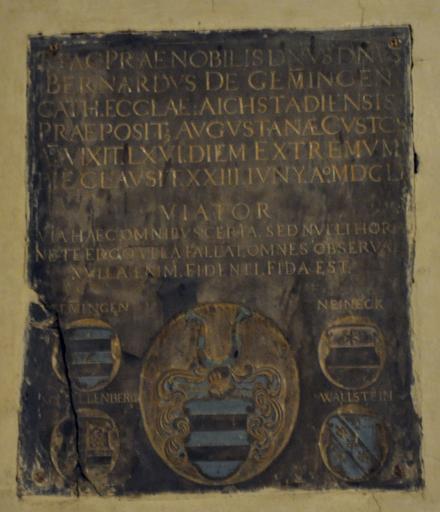 HAC PRAENOBILIS DNVS DNVS
BERNARDVS DE GEMINGEN
CATH. ECCLAE. AICHSTADIENSIS
PRAEPOSIT. AVGVSTANÆ CVSTOS
VIXIT. LXVI. DIEM EXTREMVM
CLAVSIT. XXIII. IVNY. Aº. MDCL
VIATOR
VIA HAEC OMNIBVS CERTA. SED NVLLI HORA
NE TE ERGO VLLA FALLAT. OMNES OBSERVA
ENIM. FIDENTI. FIDA EST.
NEINECK
WALLSTEIN